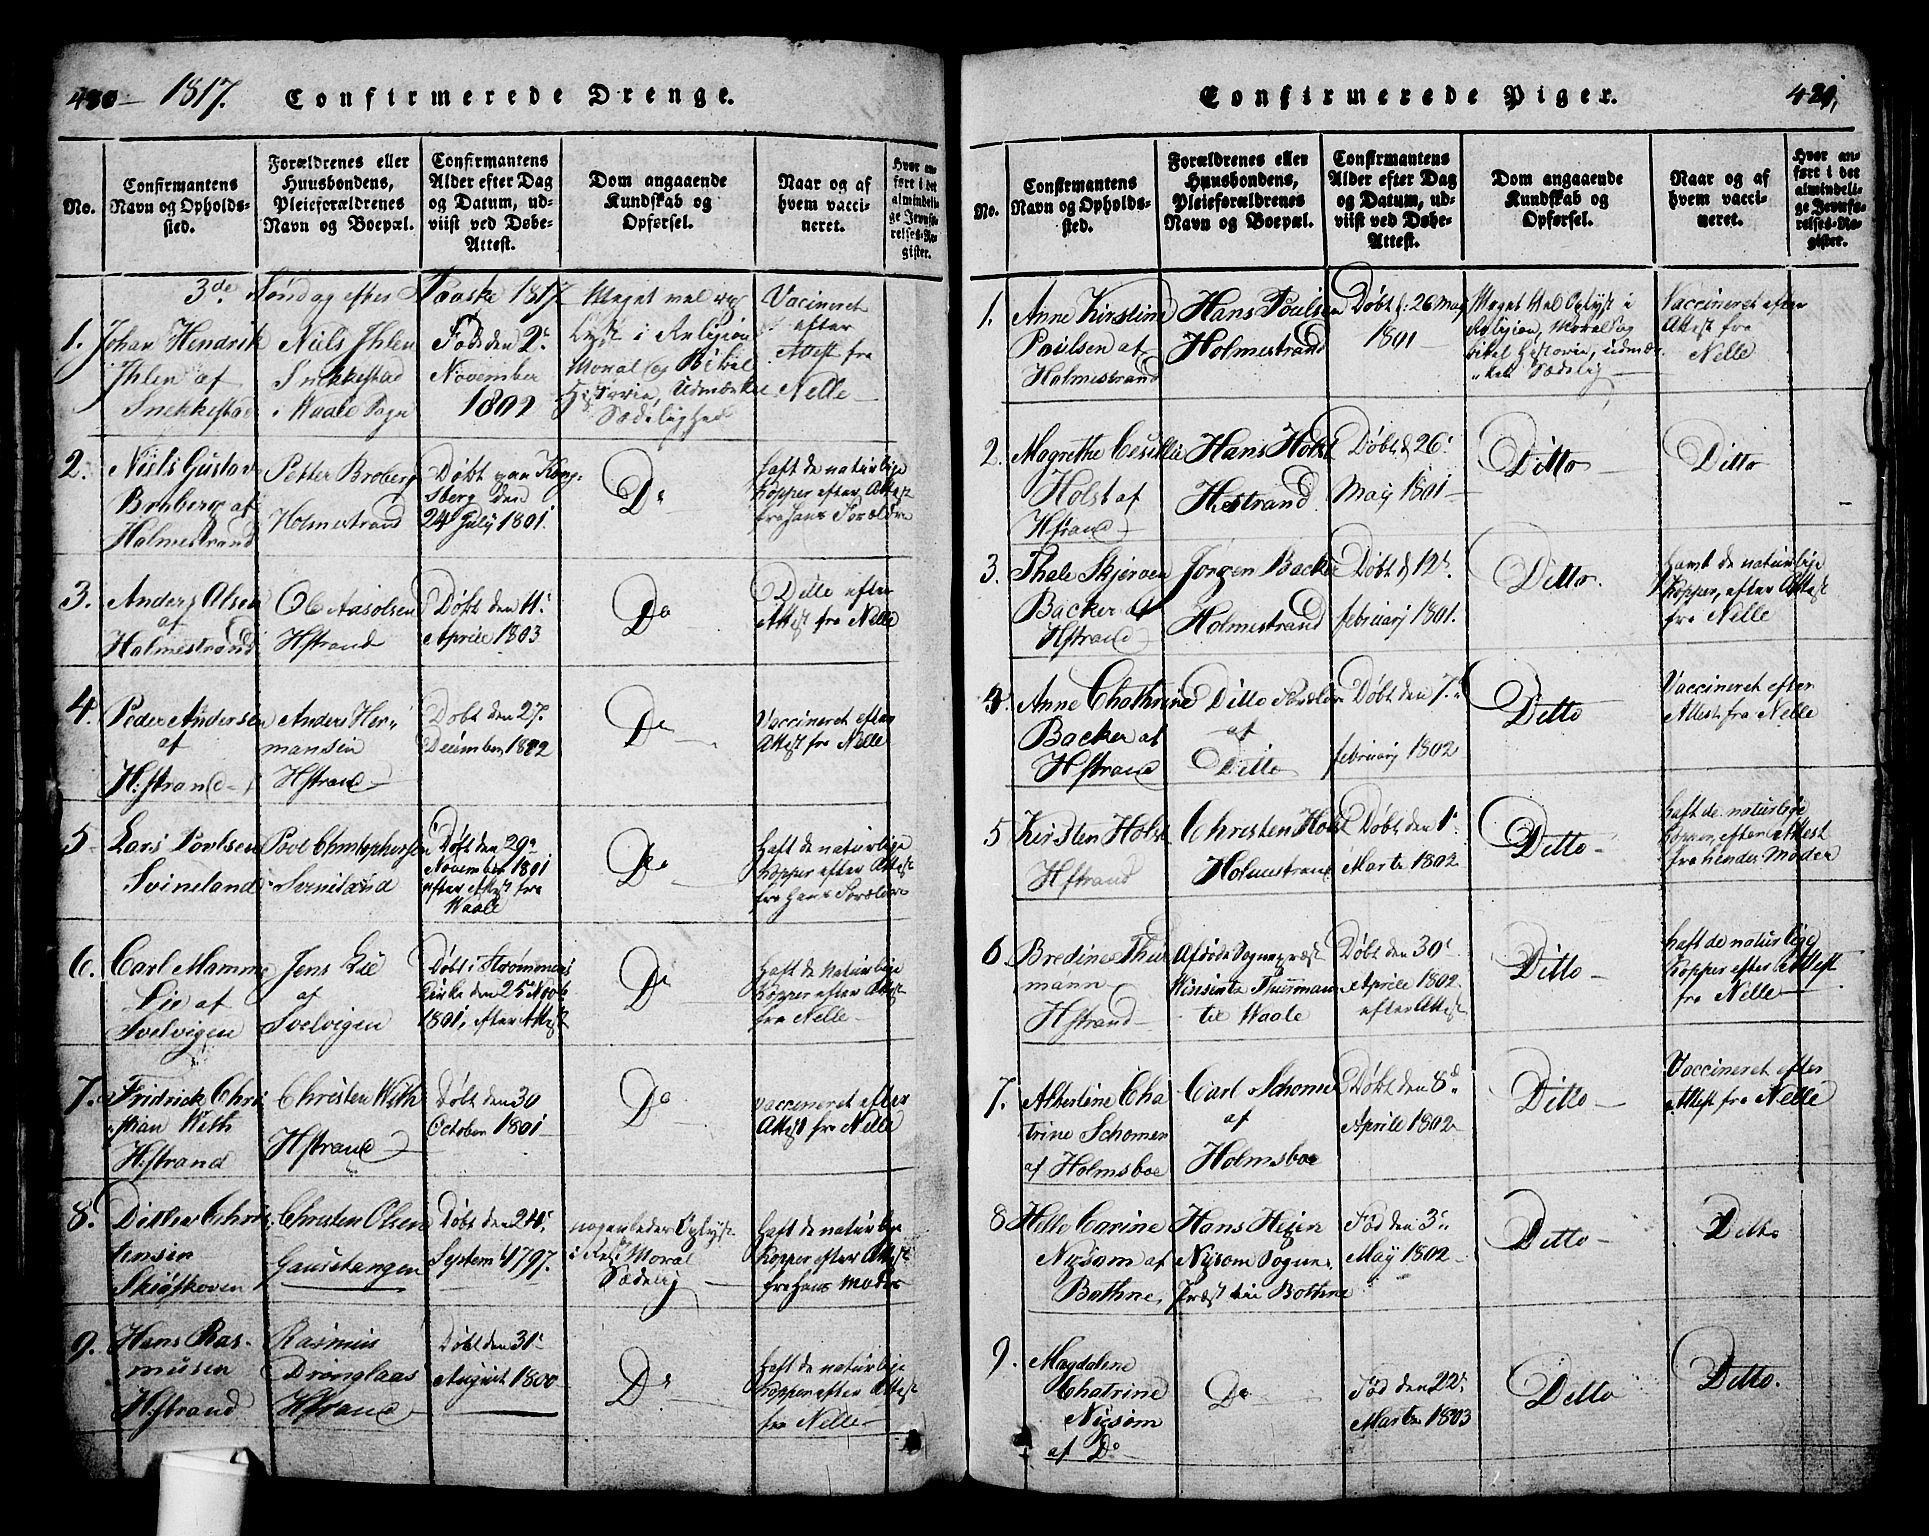 1817.
Confirmerede Drenge.
No.
Confirmantens Navn og Opholds-sted.
Forældrenes eller Huusbondens, Pleieforældrenes Navn og Boepæl.
Confirmantens Alder efter Dag og Datum, ud-viist ved Døbe-Attest.
Dom angaaende Kundskab og Opførsel.
Naar og af hvem vacci-neret.
Hvor an-ført i det almindeli-ge Jevnfø-relses-Re-gister.
3de Søndag efter Paaske 1817
1. Johan Hendrik
Ihlen af
Snekkestad
Niels Ihlen
Snekkestad
i Waale Sogn
Født den 2.
November
1802
Meget vel op
lyst i Religion
Moral og Bibel
Historie, Udmærket
Sædelighed
Vacineret
efter
Attest fra
Nelle
2. Niels Gustav
Broberg af
Holmestrand
Petter Broberg
Holmestrand
Døbt paa Kong-
sberg den
24 July 1801.
Do
haft de naturlige
Kopper efter Attest
fra hans Forældre
3. Anders Olsen
af
Holmestrand
Ole Aasolsen
Hstrand
Døbt den 11.
Aprile 1803
Do
Ditto efter
Attest fra Nelle
4. Peder Andersen
af
H:strand
Anders Her-
mansen
Hstrand
Døbt den 27.
December 1802
Do
Vaccineret efter
Attest fra Nelle
5 Lars Povlsen
Svineland
Povl Christophersen
Svineland
Døbt den 29.
November 1801
efter Attest fra
Waale
Do
haft de naturlige
Kopper efter Attest
fra hans Forældre
6. Carl Mamme
Lie af
Svelvigen
Jens Lie
af
Svelvigen
Døbt i Strømmens
Kirke den 25
1801, efter Attest
Do
haft de naturlige
Kopper efter Attest
fra Nelle
7. Fridrick Chri
stian With
H:strand
Christen With
Hstrand
Døbt den 30
October 1801
Do
vaccineret efter
Attest fra Nelle
8. Ditlev Chris
tensen
Skiøskoven
Christen Olsen
Gausetangen
Døbt den 24.
Septem 1797.
nogenledes Oplyst
i Rel. Moral
Sædelig
haft de naturlige
Kopper efter Attest
fra hans Moder
9. Hans Ras-
musen
H:strand
Rasmus
Drönglaas
Hstrand
Døbt den 31.
August 1800
Do
haft de naturlige
Kopper efter Attest
fra Nelle
Confirmerede Piger.
421,
No.
Confirmantens Navn og Opholds-sted.
Forældrenes eller Huusbondens, Pleieforældrenes Navn og Boepæl.
Confirmantens Alder efter Dag og Datum, ud-viist ved Døbe-Attest.
Dom angaaende Kundskab og Opførsel.
Naar og af hvem vacci-neret.
Hvor an-ført i det almindeli-ge Jevnfø-relses-Re-gister.
1. Anne Kirstine
Poulsen af
Holmestrand
Hans Poulsen
Holmestrand
Døbt d: 26 May
1801
Meget Vel Oplyst i
Religion, Moral og
Bibel Historie, udmær-
ket Sædelig
Vaccineret efter
Attest fra
Nelle
2. Magrethe Cesillie
Holst af
Hstrand
Hans Holst
H:strand
Døbt d 26.
May 1801
Ditto
Ditto
3. Thale Skjeraen
Backer af
Hstrand
Jørgen Backer
Holmestrand
Døbt d 12.
februarij 1801.
Ditto.
havt de naturlige
Kopper, efter Attest
fra Nelle
4. Anne Chathrine
Backer af
Hstrand
Ditto Forældre
af
Ditto
Døbt den 7.
februarij 1802
Ditto
Vaccineret efter
Attest fra Nelle
5 Kirsten Holst
Hstrand
Christen Holst
Holmestrand
Døbt den 1.
Marts 1802
Ditto
haft de naturlige
Kopper, efter Attest
fra hendes Moder
6. Bredine Thur
mann
Hstrand
Afdøde Sognepræst
Thurmann
til Waale
Døbt den 30.
Aprile 1802
efter Attest
Ditto
haft de naturlige
Kopper efter Attest
fra Nelle
7. Albertine Cha
trine Schomer
af Holmsboe
Carl Schomer
af
Holmsboe
Døbt den 8d
Aprile 1802
Ditto
Vaccineret efter
Attest fra Nelle
8 Helle Carine
Nysom af
Bothne,
Hans
Nysom Sogne-
Præst til Bothne
Fød den 3.
May 1802
Ditto
Ditto
9. Magdaline
Chatrine
Nysom
af Do
Do
Fød den 22.
Marts 1803
Ditto
Ditto.